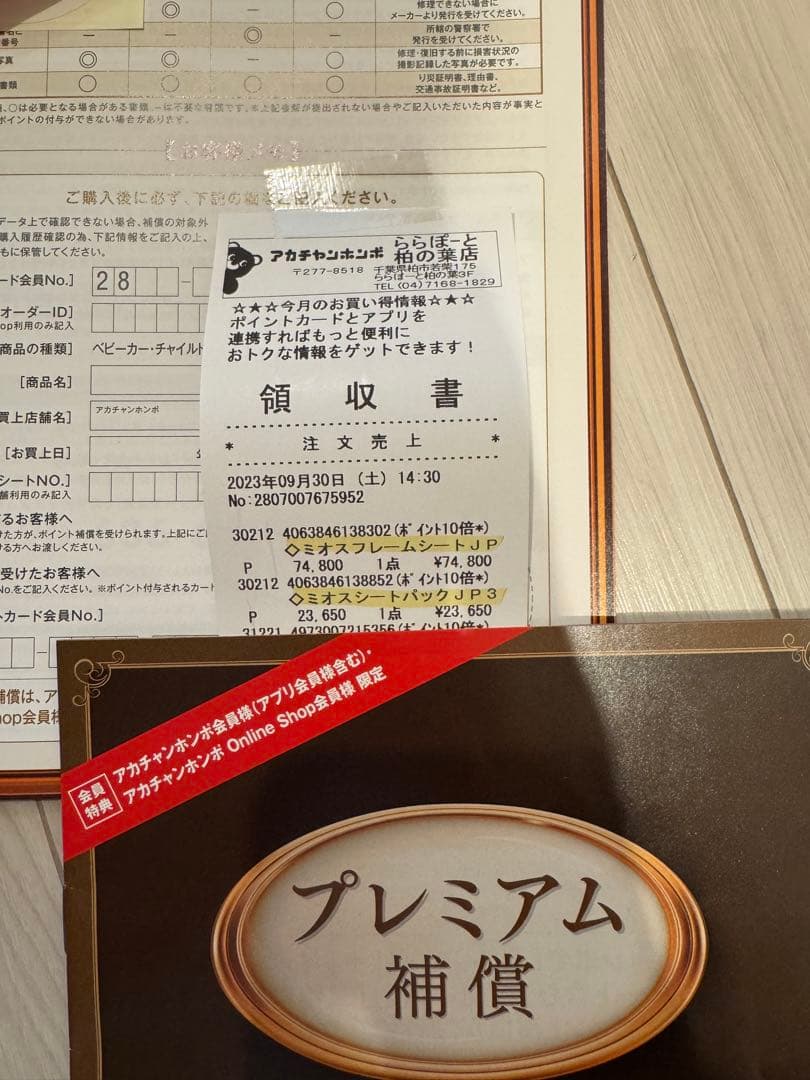 ◎ － ○
修理できない場合に
メーカーより発行を受けてください。
－ － ◎ －
所轄の警察署で
発行を受けてください。
写真 ◎ ◎ － ◎
修理・復旧する前に損害状況の
撮影記録した写真が必要です。
書類 ○ ○ ○ ○
り災証明書、理由書、
交通事故証明書など。
ポイントの付与ができない場合があります。
【お客様メモ】
ご購入後に必ず、下記の欄をご記入ください。
データ上で確認できない場合、補償の対象外
購入履歴確認の為、下記情報をご記入の上、
もに保管してください。
ード会員No.] 28
オーダーID]
op利用のみ記入
商品の種類] ベビーカー・チャイルド
[商品名]
買上店舗名] アカチャンホンポ
[お買上日]
シートNO.]
舗利用のみ記入
るお客様へ
けた方が、ポイント補償を受けられます。上記にご
ける方へお渡しください。
受けたお客様へ
No.をご記入ください。※ポイント付与されるカート
トカード会員No.]
補償は、ア
hop会員様
アカチャンホンポ ららぽーと
柏の葉店
〒277-8518 千葉県柏市若柴175
ららぽーと柏の葉3F
TEL (04)7168-1829
☆★☆今月のお買い得情報★☆★
ポイントカードとアプリを
連携すればもっと便利に
おトクな情報をゲットできます！
領収書
* 注文売上 *
2023年09月30日 (土) 14:30
No:2807007675952
30212 4063846138302(ﾎﾟｲﾝﾄ10倍*)
◇ミオスフレームシートJP
P 74,800 1点 ¥74,800
30212 4063846138852(ﾎﾟｲﾝﾄ10倍*)
◇ミオスシートパックJP3
P 23,650 1点 ¥23,650
31221 4973007215356(ﾎﾟｲﾝﾄ10倍*)
会員
特典
アカチャンホンポ会員様(アプリ会員様含む)・
アカチャンホンポ Online Shop会員様 限定
プレミアム
補償